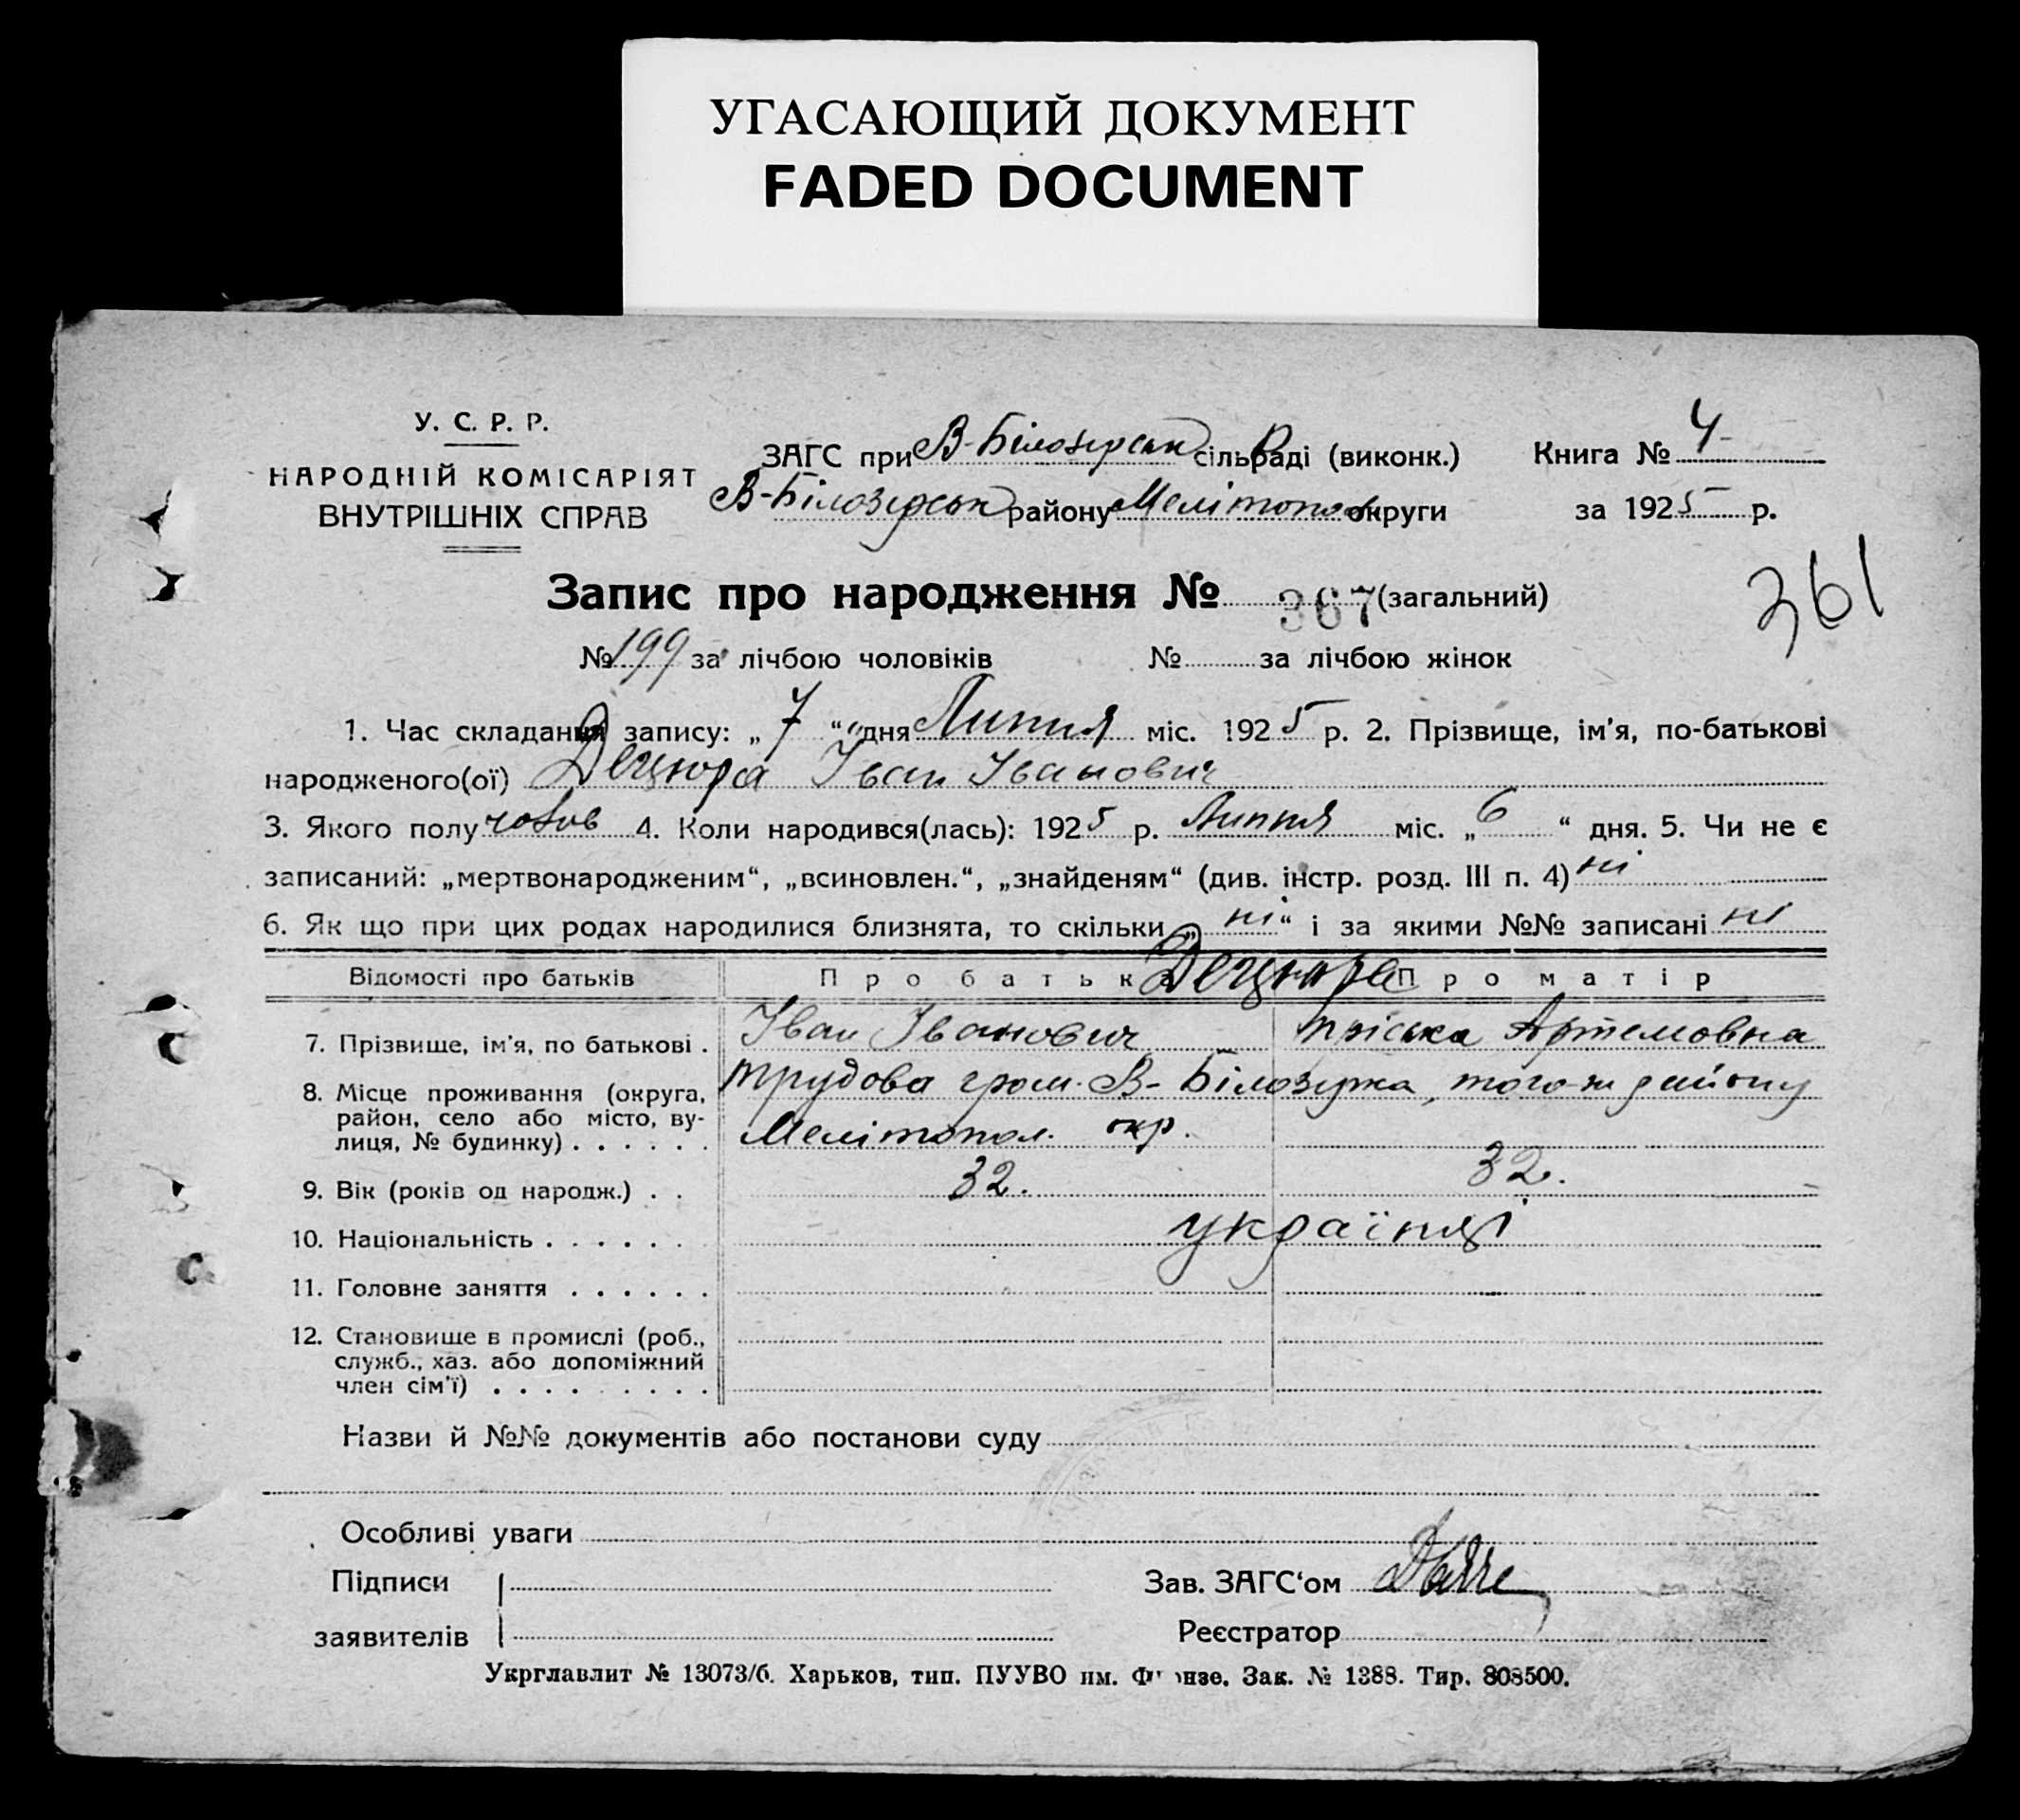 УГАСАЮЩИЙ ДОКУМЕНТ
FADED DOCUMENT
У. С. Р. Р.
НАРОДНІЙ КОМІСАРІЯТ
ВНУТРІШНІХ СПРАВ
ЗАГС при В-Білозерськ сільраді (виконк.)
В-Білозерськ району Мелітопол округи
Книга № 4
за 1925 р.
Запис про народження № 367 (загальний)
361
№ 199 за лічбою чоловіків № за лічбою жінок
1. Час складання запису: „ 7 “ дня Липня міс. 1925 р. 2. Прізвище, ім'я, по-батькові
народженого(ої) Децюра Іван Іванович
3. Якого полу чолов 4. Коли народився(лась): 1925 р. Липня міс. „ 6 “ дня. 5. Чи не є
записаний: „мертвонародженим“, „всиновлен.“, „знайденям“ (див. інстр. розд. III п. 4) ні
6. Як що при цих родах народилися близнята, то скільки „ ні “ і за якими №№ записані ні
Відомості про батьків Про батька Децюра Про матір
7. Прізвище, ім'я, по батькові . Іван Іванович Пріська Артемовна
8. Місце проживання (округа, трудова гром. В-Білозерка, того-ж району
район, село або місто, ву-
лиця, № будинку) . . . . . . Мелітопол. окр.
9. Вік (років од народж.) . . 32. 32.
10. Національність . . . . . . українці
11. Головне заняття . . . . . .
12. Становище в промислі (роб.,
служб., хаз. або допоміжний
член сім'ї) . . . . . . . . .
Назви й №№ документів або постанови суду
Особливі уваги
Підписи
заявителів
Зав. ЗАГС‘ом
Реєстратор
Укрглавлит № 13073/б. Харьков, тип. ПУУВО им. Фрунзе. Зак. № 1388. Тир. 808500.